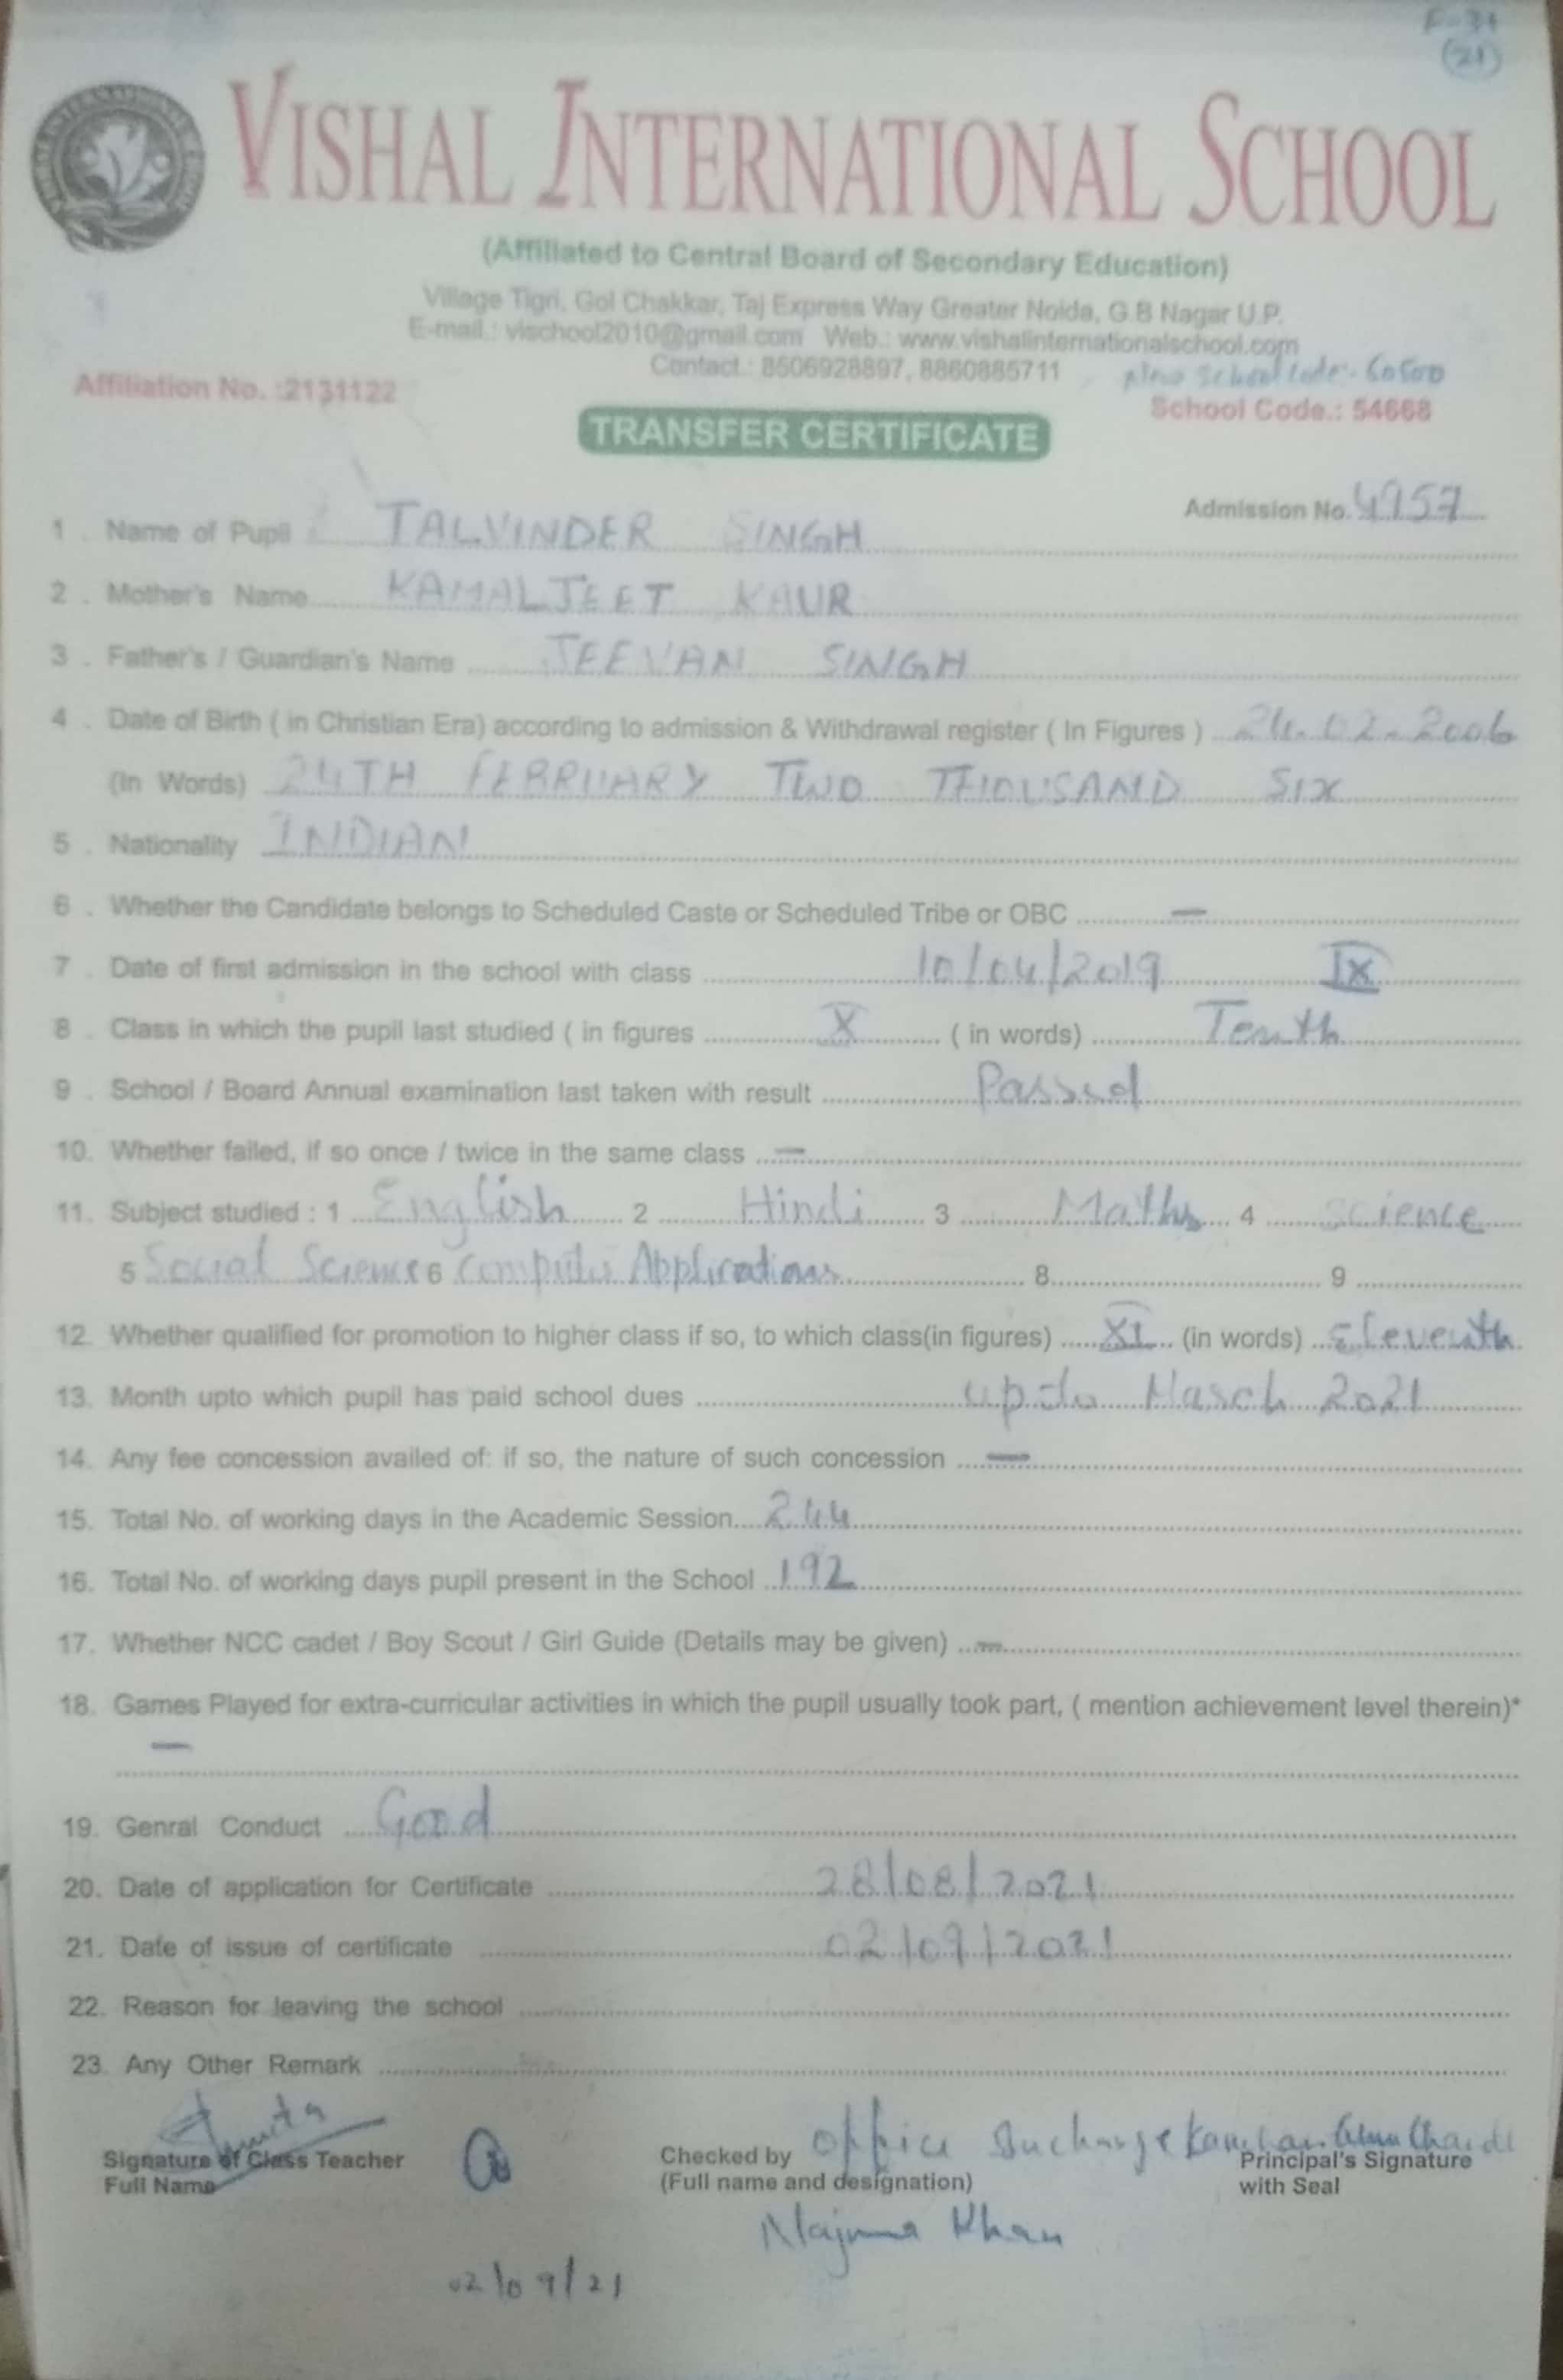 (21)
VISHAL INTERNATIONAL SCHOOL
(Affiliated to Central Board of Secondary Education)
Village Tigri, Gol Chakkar, Taj Express Way Greater Noida, G.B Nagar U.P.
E-mail.: vischool2010@gmail.com Web.: www.vishalinternationalschool.com
Contact.: 8506928897, 8860885711
New School Code:- 60500
Affiliation No. :2131122
School Code.: 54668
TRANSFER CERTIFICATE
Admission No. 4957
1 . Name of Pupil TALVINDER SINGH
2 . Mother's Name KAMALJEET KAUR
3 . Father's / Guardian's Name JEEVAN SINGH
4 . Date of Birth ( in Christian Era) according to admission & Withdrawal register ( In Figures ) 24.02.2006
(In Words) 24TH FEBRUARY TWO THOUSAND SIX
5 . Nationality INDIAN
6 . Whether the Candidate belongs to Scheduled Caste or Scheduled Tribe or OBC —
7 . Date of first admission in the school with class 10/04/2019 IX
8 . Class in which the pupil last studied ( in figures X ( in words) Tenth
9 . School / Board Annual examination last taken with result Passed
10. Whether failed, if so once / twice in the same class —
11. Subject studied : 1 English 2 Hindi 3 Maths 4 Science
5 Social Science 6 Computer Applications 8 9
12. Whether qualified for promotion to higher class if so, to which class(in figures) XI (in words) Eleventh
13. Month upto which pupil has paid school dues upto March 2021
14. Any fee concession availed of: if so, the nature of such concession —
15. Total No. of working days in the Academic Session 244
16. Total No. of working days pupil present in the School 192
17. Whether NCC cadet / Boy Scout / Girl Guide (Details may be given) —
18. Games Played for extra-curricular activities in which the pupil usually took part, ( mention achievement level therein)*
—
19. Genral Conduct Good
20. Date of application for Certificate 28/08/2021
21. Date of issue of certificate 02/09/2021
22. Reason for leaving the school
23. Any Other Remark
Signature of Class Teacher
Full Name
Checked by Office Incharge
(Full name and designation)
Najma Khan
Principal's Signature
with Seal
02/09/21